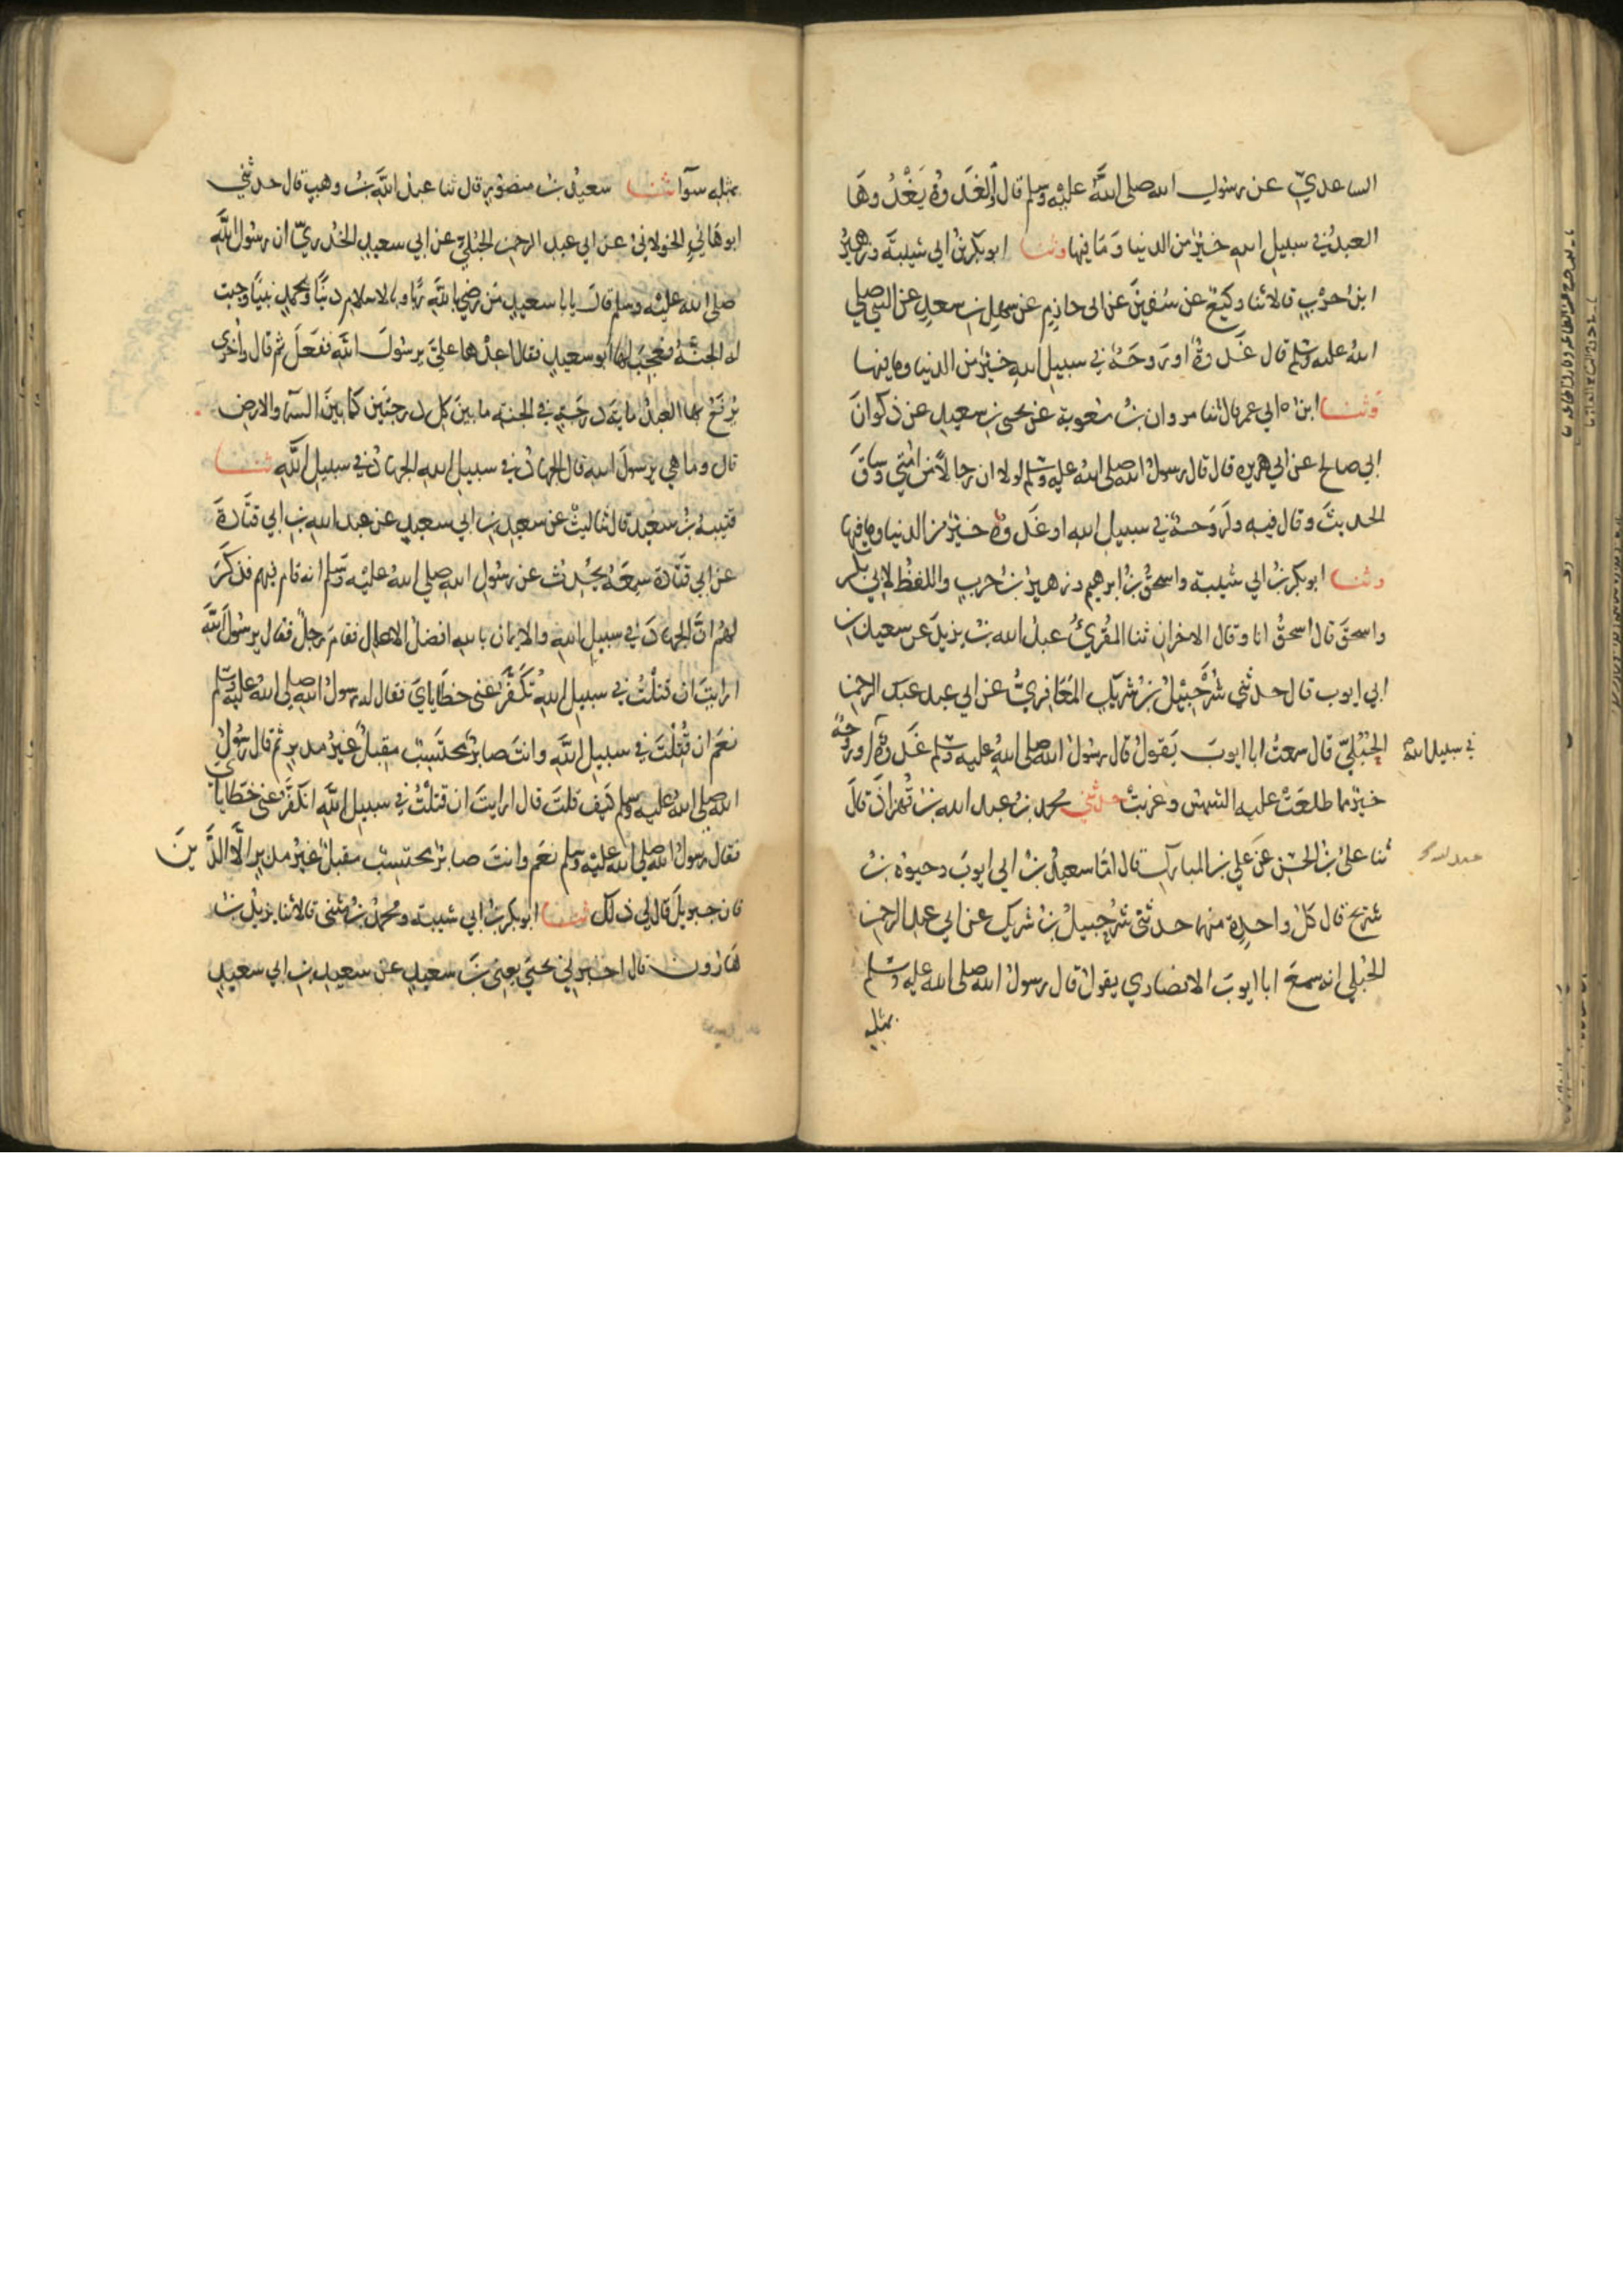 الساعديّ عن رسول الله صلى اللَّه عليه وسلم قال والغَدوةُ يَغْدُوهَا
العبدُ في سبيل الله خيرٌ من الدنيا وَمَا فيها وثنا ابو بكر بنُ ابي شيبةَ وزهيرُ
ابنُ حرْبٍ قالا ثنا وكيعٌ عن سُفينَ عن ابى حازِمٍ عن سهلِ بنِ سعدٍ عن النبي صلي
اللهُ عليه وسلم قال غَدوةٌ او رَوحَةٌ في سبيل اللهِ خيرٌ من الدنيا وما فيها
وثنا ابنُ ابي عمر قال ثنا مروان بنُ معوية عن يحيى بنِ سعيدٍ عن ذكوانَ
ابي صالح عن ابي هريره قال قال رسولُ الله صلى اللهُ عليه وسلم لولا ان رجالًا من امّتي وساقَ
الحديثَ وقال فيه ولَرَوحةٌ في سبيل الله او غَدوةٌ خيرٌ من الدنيا وما فيها
وثنا ابو بكر بنُ ابي شيبة واسحقُ بنُ ابرهيم وزهيرُ بنُ حربٍ واللفظُ لابي بكرٍ
واسحقَ قال اسحقُ انا وقال الاخرانِ ثنا المقرئُ عبدُ الله بنُ يزيدَ عن سعيد بن
ابي ايوب قال حدثني شُرَحْبيلُ بنُ شريكٍ المعَافِريُّ عن ابي عبد عبد الرحمن
الحُبُليّ قال سمعتُ ابا ايوبَ يَقولُ قال رسُولُ الله صلى اللهُ عليه وسلم غَدوةٌ او روحةٌ
في سبيل الله
خيرٌ مما طلعَتْ عليه الشمسُ وغربتْ حدثني محمد بنُ عبد الله بنِ قُهزاذَ قالَ
ثنا عليُّ بنُ الحسَنِ عَن علي بن المبارك قال انَا سعيدُ بنُ ابي ايوبَ وحيوةُ بنُ
عبد الله
شريح قال كلُّ واحدٍ منهما حدثني شُرَحبيلُ بنُ شريكٍ عن ابي عبد الرحمن
الحُبُلي انه سمعَ ابا ايوبَ الانصاري يقولُ قال رسولُ الله صلى الله عليه وسلم
بمثله
بمثله سوآ ثنا سعيدُ بنُ منصورٍ قال ثنا عبدُ اللَّه بنُ وهبٍ قال حدثني
ابو هَانيءٍ الخولانيُّ عن ابي عبد الرحمن الحُبُليِّ عن ابي سعيدٍ الخُدريّ ان رسُول اللَّه
صلى الله عليْه وسلم قالَ يابا سعيدٍ مَن رضيَ باللَّه ربًّا وبالاسلامِ دينًا وبمحمدٍ نبيًا وجبت
له الجنّةُ فعجبَ لها ابو سعيدٍ فقال اعدْها عليَّ يرسُولَ اللَّه ففعَلَ ثم قال واُخرى
يُرفَعُ بها العبدُ مايةَ درَجةٍ في الجنة ما بينَ كل درجتَين كما بينَ السمآ والارضِ
قال وما هي يرسولَ الله قال الجهادُ في سبيل الله الجهادُ في سبيل اللَّه ثنا
قتيبةُ بنُ سعيدٍ قال ثنا ليثٌ عن سعيدِ بنِ ابي سعيدٍ عن عبد الله بنِ ابي قتَادةَ
عن ابي قتَادةَ سمِعَهُ يحُدِثُ عن رسُولِ الله صلي اللهُ عليْه وسلم انه قام فيهم فذكَرَ
لهُم انَّ الجهادَ في سبيلِ اللهِ والايمان بالله افضلُ الاعمالِ فقامَ رجلٌ فقال يرسُولَ اللَّه
ارايتَ ان قتلْتُ في سبيل اللهِ تُكَفَّرُ عني خطَايايَ فقال له رسولُ الله صلي اللهُ عليه وسلم
نعَم ان قُتِلْتَ في سبيلِ اللَّه وانتَ صابرٌ محتَسِبٌ مقبلٌ غيرُ مدبرٍ ثم قال رسُولُ
الله صلي اللهُ عليه وسلم كيف قلتَ قال ارايتَ ان قتلْتُ في سبيل اللَّه اتكفَّرُ عني خطَايايَ
فقال رسولُ الله صلي الله عليْه وسلم نعَم وانتَ صابرٌ محتسِبٌ مقبلٌ غيرُ مدبرٍ الَّا الدَّينَ
فان جبريلَ قال لي ذلك ثنا ابو بكر بنُ ابي شيبة ومحمدُ بنُ مثنى قالا ثنا يزيدُ بنُ
هَارُونَ قال اخبرني يحيَى يعني بنَ سعيدٍ عن سعيدِ بنِ ابي سعيدٍ